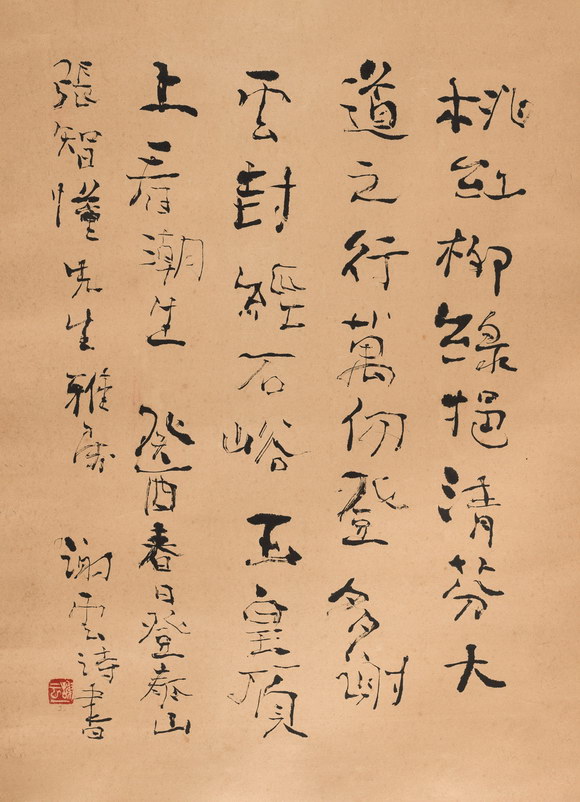 桃紅柳綠挹清芬大
道之行萬仞登多謝
雲封經石峪玉皇頂
上看潮生 癸酉春日登泰山
張智慬先生雅屬 謝雲詩書